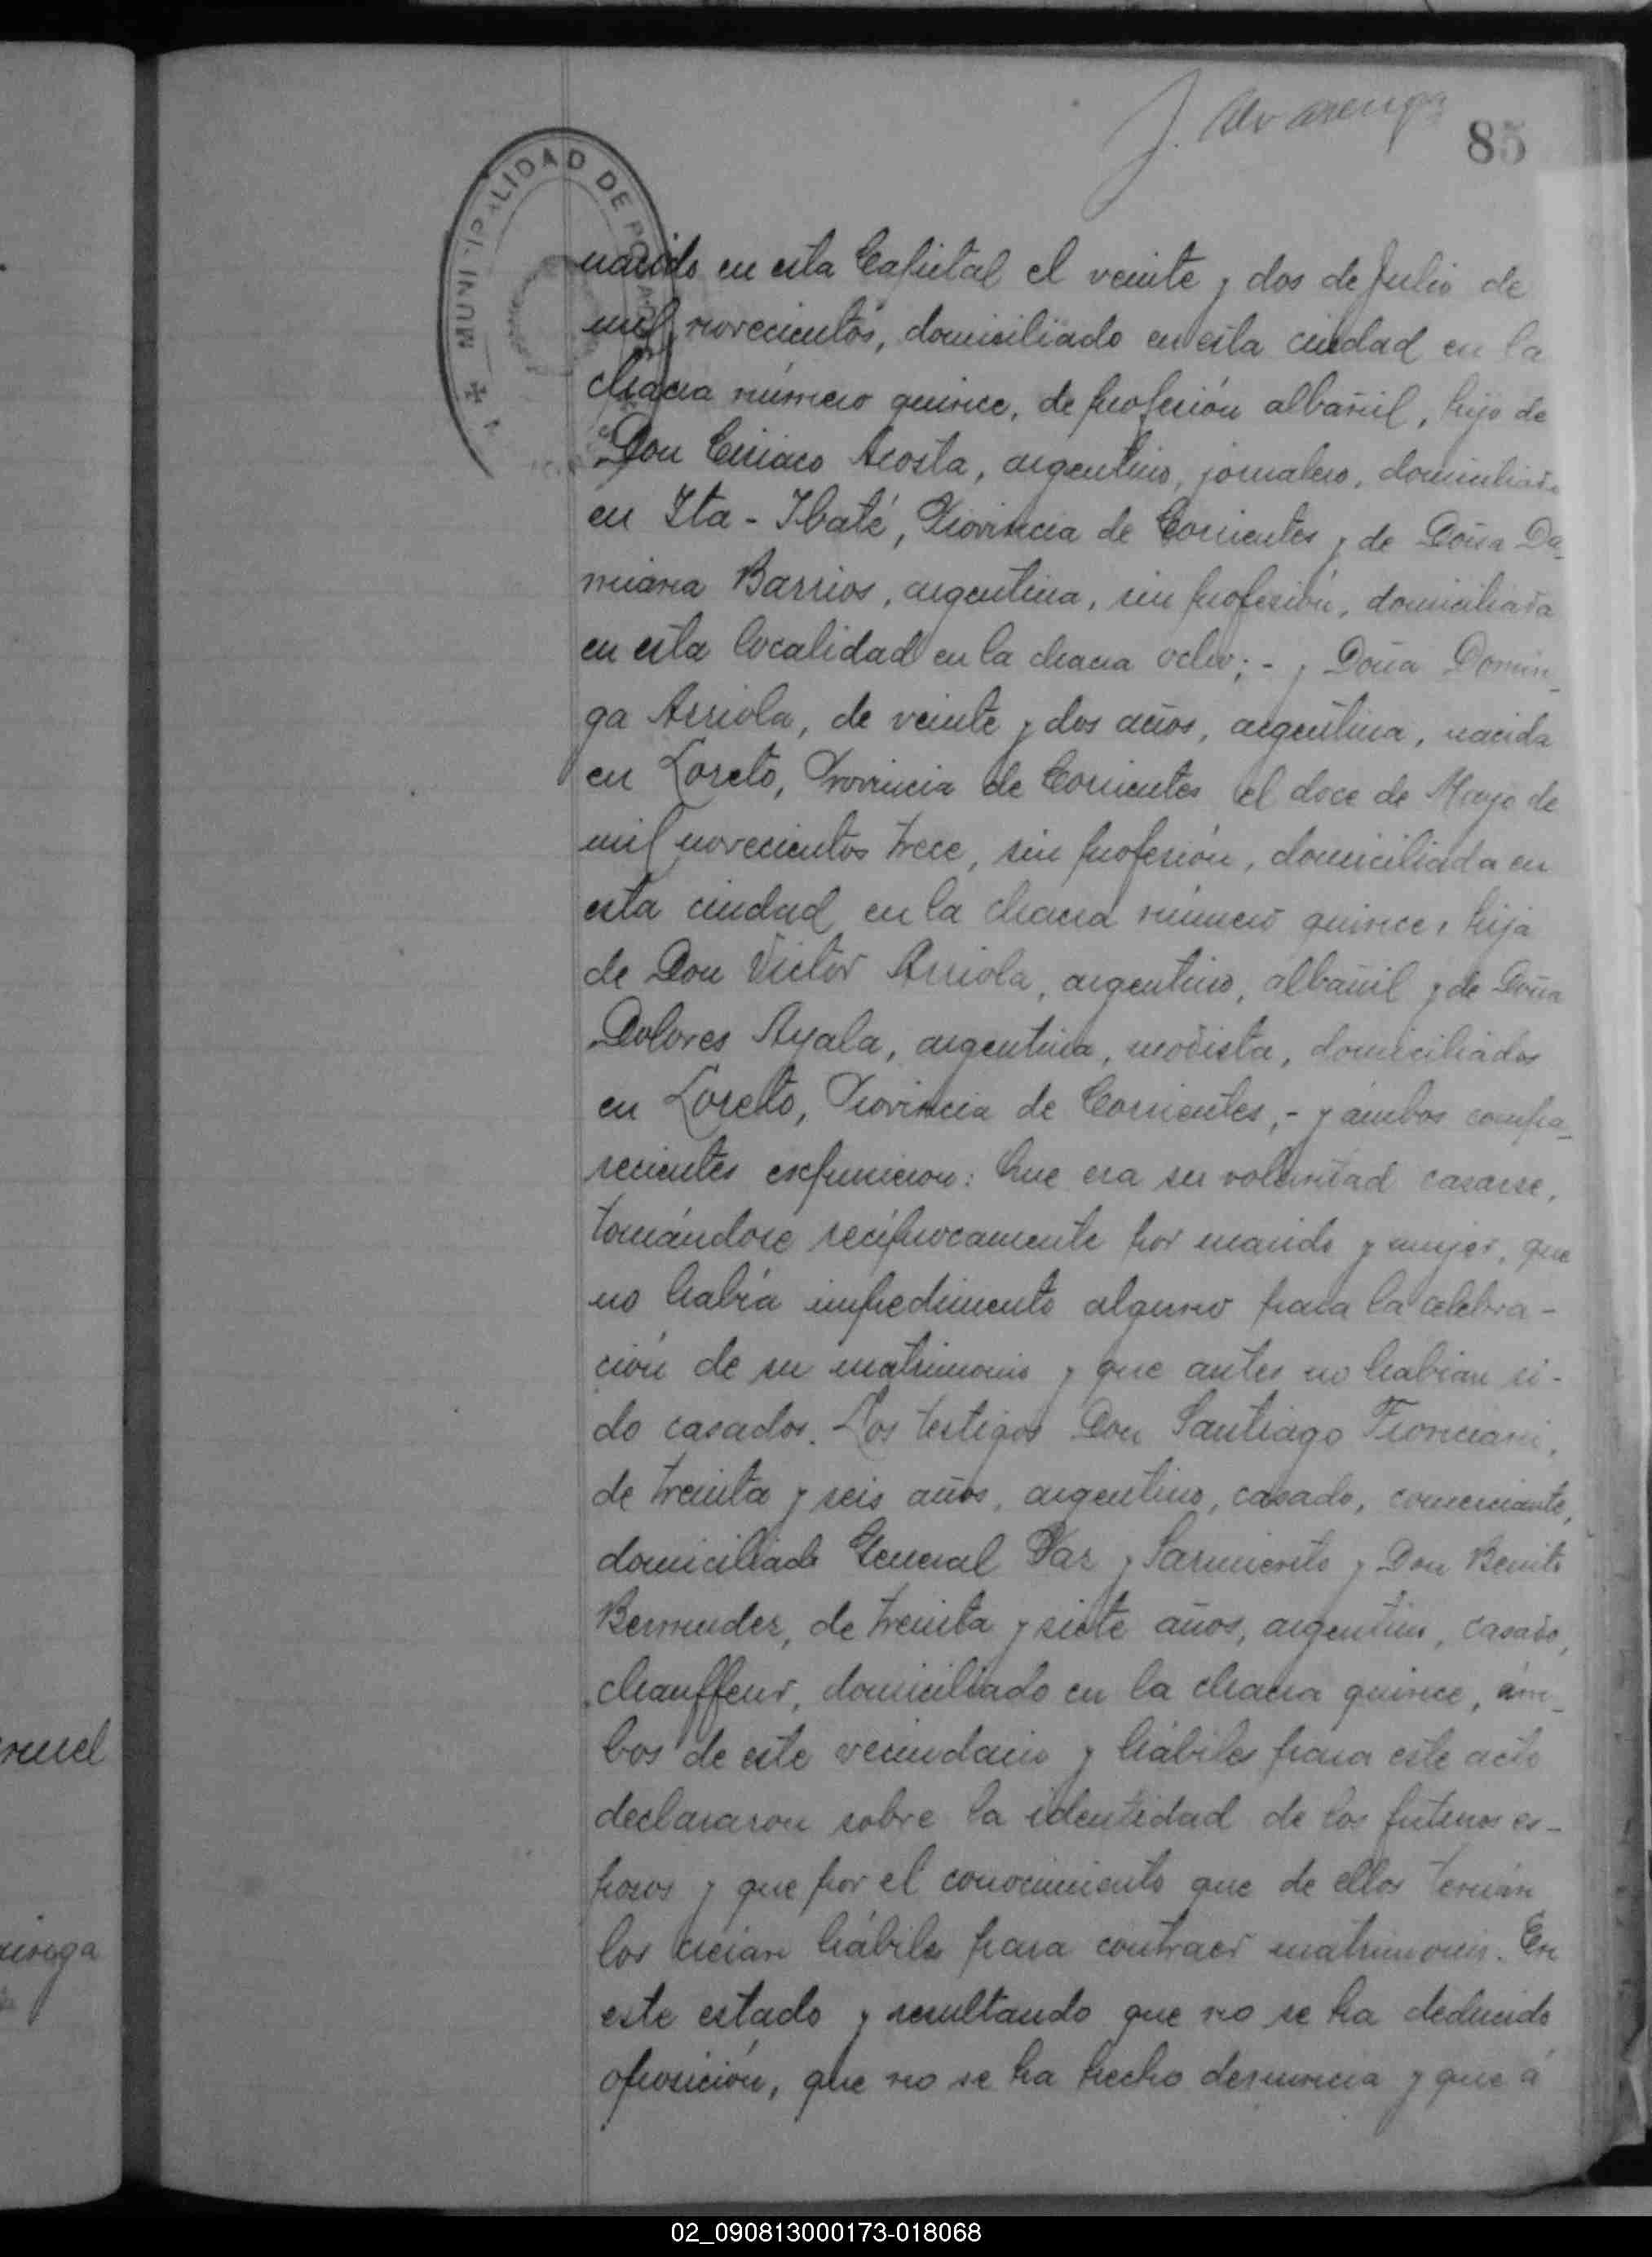 85
MUNICIPALIDAD DE POSADAS
nacido en esta Capital el veinte y dos de Julio de
mil novecientos, domiciliado en esta ciudad en la
chacra número quince, de profesión albañil, hijo de
Don Ciriaco Acosta, argentino, jornalero, domiciliado
en Ita-Ibaté, Provincia de Corrientes y de Doña Da-
miana Barrios, argentina, sin profesión, domiciliada
en esta localidad en la chacra ocho; - y Doña Domin-
ga Arriola, de veinte y dos años, argentina, nacida
en Loreto, Provincia de Corrientes el doce de Mayo de
mil novecientos trece, sin profesión, domiciliada en
esta ciudad en la chacra número quince, hija
de Don Victor Arriola, argentino, albañil y de Doña
Dolores Ayala, argentina, modista, domiciliados
en Loreto, Provincia de Corrientes, - y ámbos compa-
recientes expusieron: Que era su voluntad casarse,
tomándose recíprocamente por marido y mujer, que
no había impedimento alguno para la celebra-
ción de su matrimonio y que antes no habian si-
do casados. Los testigos Don Santiago
de treinta y seis años, argentino, casado, comerciante,
domiciliado General Paz y Sarmiento y Don Benito
Bermudez, de treinta y siete años, argentino, casado,
chauffeur, domiciliado en la chacra quince, ám-
bos de este vecindario y hábiles para este acto
declararon sobre la identidad de los futuros es-
posos y que por el conocimiento que de ellos tenían
los creian hábiles para contraer matrimonio. En
este estado y resultando que no se ha deducido
oposición, que no se ha hecho denuncia y que á
02_090813000173-018068